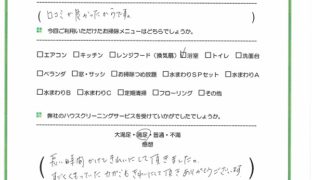 口コミが良かったからです。
今回ご利用いただけたお掃除メニューはどちらでしょうか。
□エアコン □キッチン □レンジフード(換気扇) ☑浴室 □トイレ □洗面台
□ベランダ □窓・サッシ □お掃除つめ放題 □水まわりSPセット □水まわりA
□水まわりB □水まわりC □定期清掃 □フローリング □その他
弊社のハウスクリーニングサービスを受けていかがでしたでしょうか。
大満足・満足・普通・不満
感想
長い時間かけてきれいにして頂きました。
すごくくもってたカガミもきれいにして頂きありがとうございます